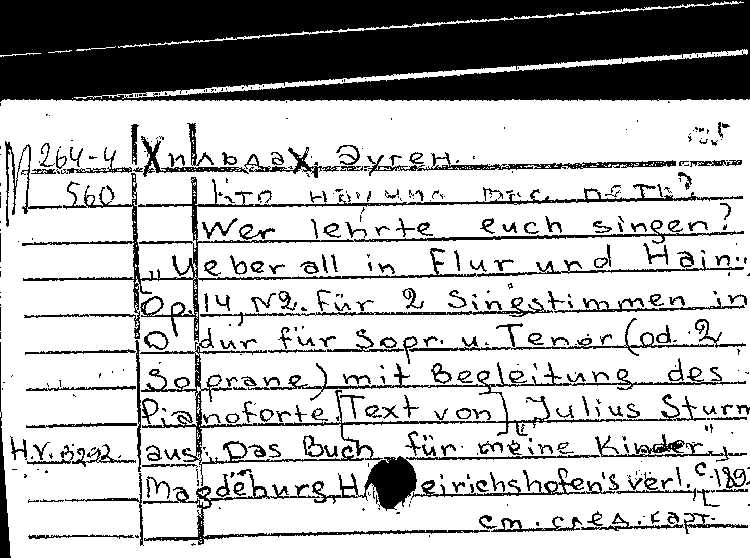 П 264-4 Хильдах, Эуген.
560 Кто научил вас петь?
Wer lehrte euch singen?
„Ueberall in Flur und Hain..
Op. 14, N2. Für 2 Singstimmen in
D dur für Sopr. u. Tenor (od. 2
Soprane) mit Begleitung des
Pianoforte [Text von] Julius Sturm
aus: „Das Buch für meine Kinder",
H.V. 8292. Magdeburg, Heinrichshofen's verl. c. 189
см. след. карт.